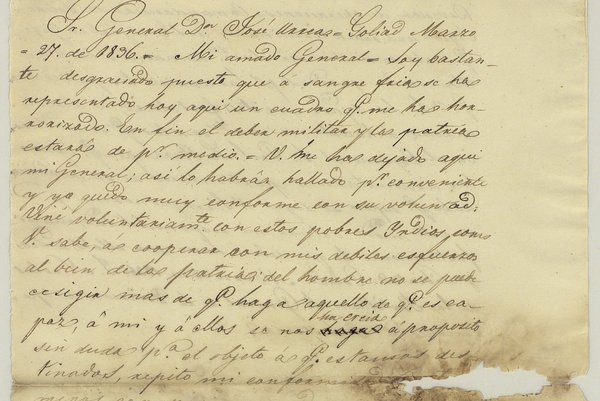 Sr. General Dn. José Urrea = Goliad Marzo
= 27. de 1836. = Mi amado General = Soy bastan-
te desgraciado puesto que á sangre fria se ha
representado hoy aqui un cuadro q.e me ha hor-
rorizado. En fin el deber militar y la patria
estarás de pr. medio. = V. me ha dejado aqui
mi General; asi lo habrár hallado pr. conveniente
y yo quedo muy conforme con su voluntad;
Viné voluntariamte. con estos pobres Yndios, como
V. sabe, á cooperar con mis debiles esfuerzos
al bien de la patria; del hombre no se puede
ecsigir mas de q.e haga aquello de q.e es ca-
paz, á mi y á ellos se nos creia á proposito
sin duda pa. el objeto á q.e estamos des-
tinados, repito mi conformidad